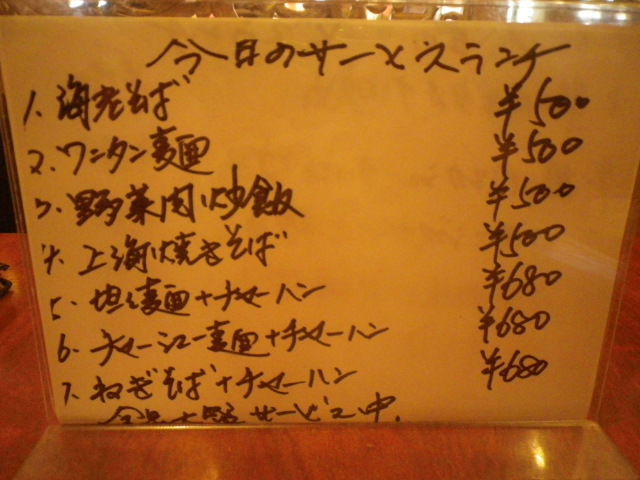 今日のサービスランチ
1. 海老そば ¥500
2. ワンタン麺 ¥500
3. 野菜肉炒飯 ¥500
4. 上海焼きそば ¥500
5. 坦々麺+チャーハン ¥680
6. チャーシュー麺+チャーハン ¥680
7. ねぎそば+チャーハン ¥680
サービス中.